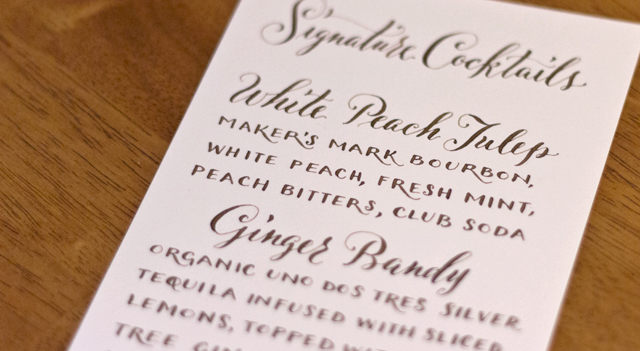 Signature Cocktails
White Peach Julep
MAKER'S MARK BOURBON,
WHITE PEACH, FRESH MINT,
PEACH BITTERS, CLUB SODA
Ginger Bandy
ORGANIC UNO DOS TRES SILVER
TEQUILA INFUSED WITH SLICED
LEMONS, TOPPED
TREE